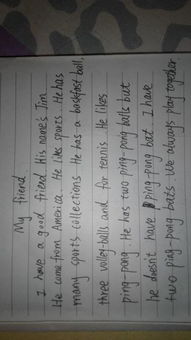 My friend
I have a good friend His name's Jim
He came from America. He likes sports. He has
many sports collections He has a basketball,
three volley-balls and for tennis. He likes
ping-pong. He has two ping-pong balls but
he doesn't have ping-pong bat. I have
two ping-pong bats. We always play together